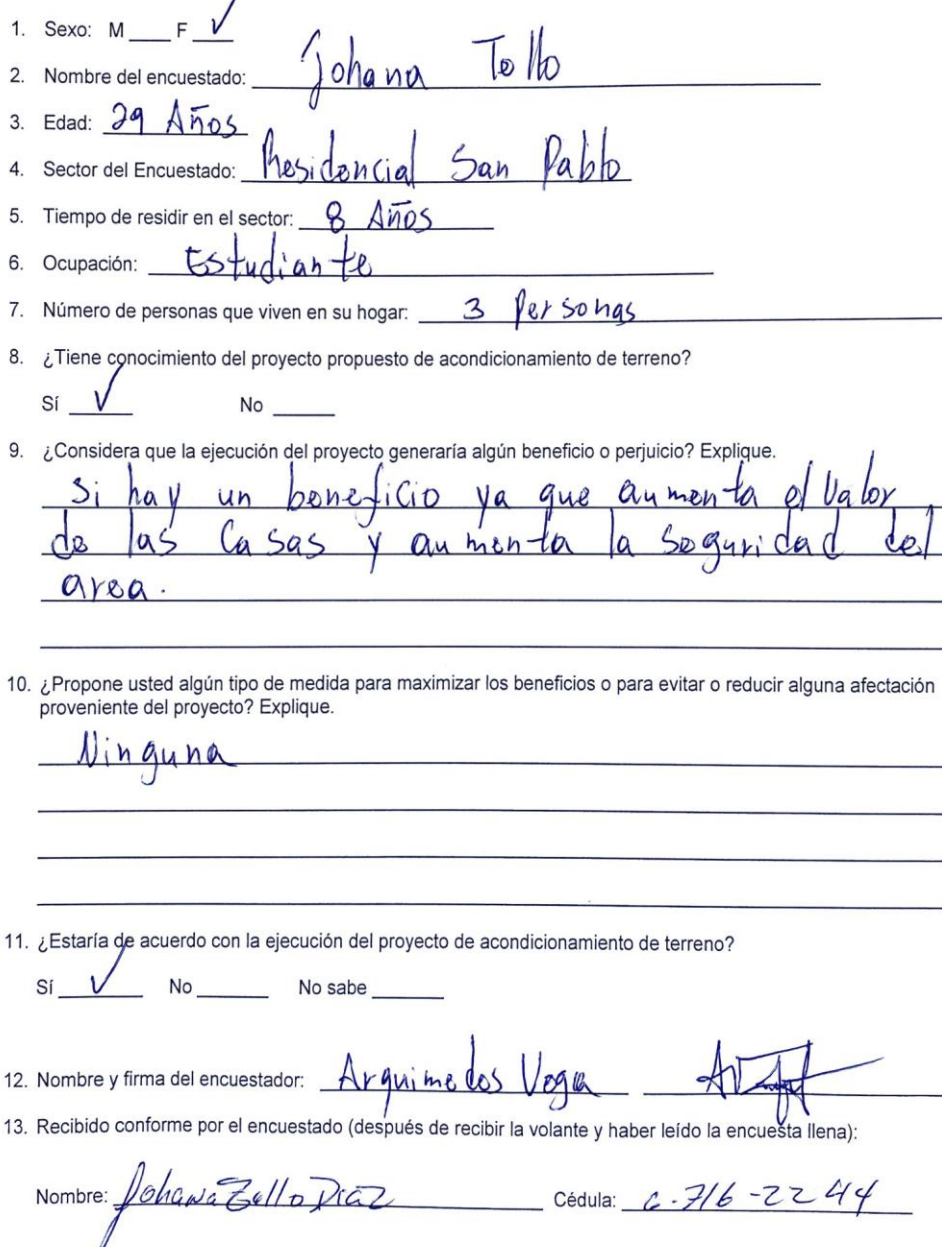 1. Sexo: M ____ F √
2. Nombre del encuestado: Johana Tello
3. Edad: 29 Años
4. Sector del Encuestado: Residencial San Pablo
5. Tiempo de residir en el sector: 8 Años
6. Ocupación: Estudiante
7. Número de personas que viven en su hogar: 3 Personas
8. ¿Tiene conocimiento del proyecto propuesto de acondicionamiento de terreno?
Sí √ No ____
9. ¿Considera que la ejecución del proyecto generaría algún beneficio o perjuicio? Explique.
Si hay un beneficio ya que aumenta el valor
de las Casas y aumenta la seguridad del
area.
10. ¿Propone usted algún tipo de medida para maximizar los beneficios o para evitar o reducir alguna afectación
proveniente del proyecto? Explique.
Ninguna
11. ¿Estaría de acuerdo con la ejecución del proyecto de acondicionamiento de terreno?
Sí √ No ____ No sabe ____
12. Nombre y firma del encuestador: Arquimedes Vega
13. Recibido conforme por el encuestado (después de recibir la volante y haber leído la encuesta llena):
Nombre: Johana Díaz Cédula: 716-2244